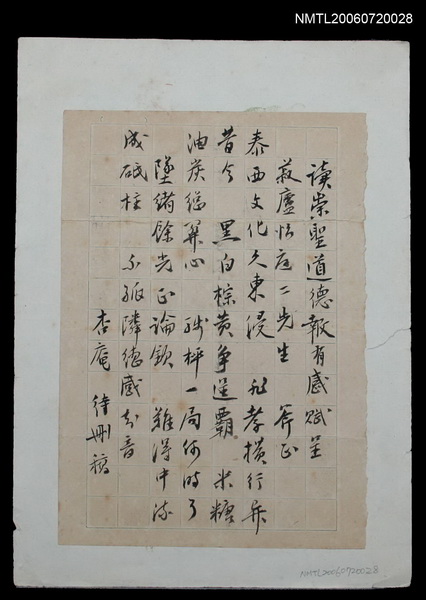 NMTL20060720028
讀崇聖道德報有感賦呈
菽廬怡庵二先生 斧正
泰西文化久東浸 非孝橫行異
昔今 黑白棕黃爭逞霸 米糖
油炭總關心 殘枰一局何時了
墜緒餘光正論欽 難得中流
成砥柱 不孤隣德感知音
杏庵 待刪稿
NMTL20060720028